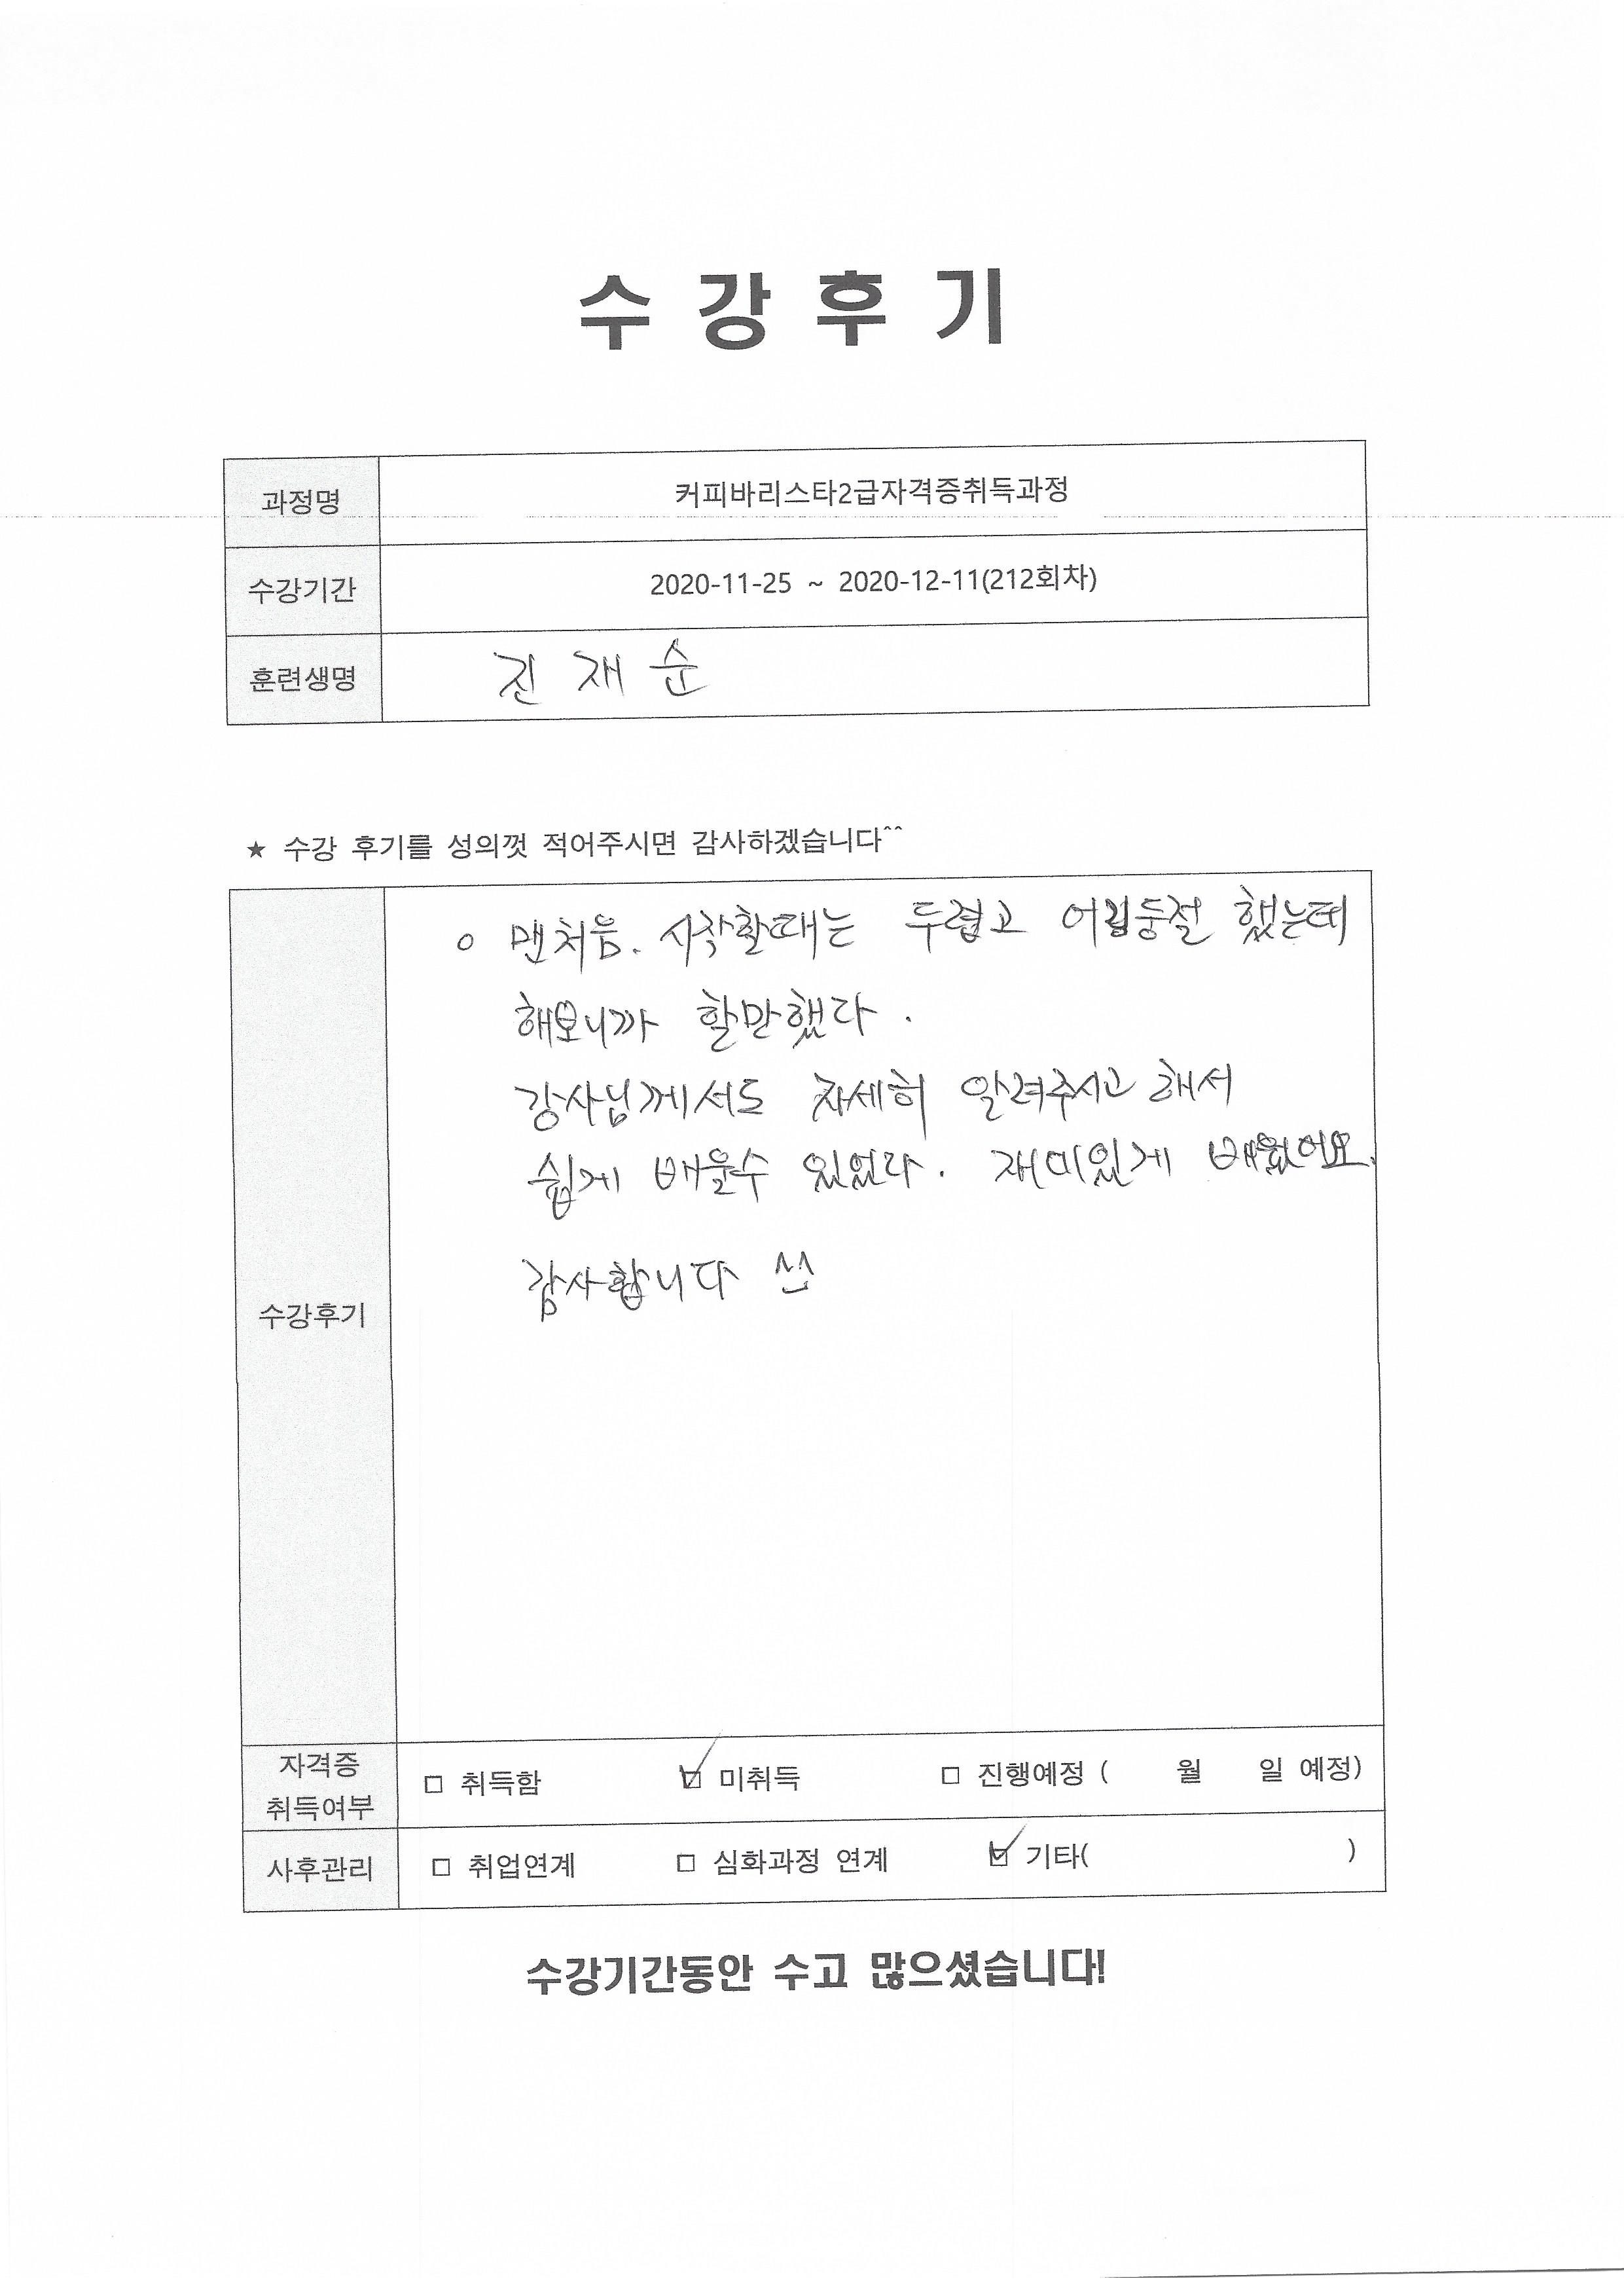 수강후기
과정명 커피바리스타2급자격증취득과정
수강기간 2020-11-25 ~ 2020-12-11(212회차)
훈련생명 진재순
★ 수강 후기를 성의껏 적어주시면 감사하겠습니다^^
수강후기
○ 맨처음. 시작할때는 두렵고 했는데
해보니까 할만했다.
강사님께서도 자세히 알려주시고 해서
쉽게 배울수 있었다. 재미있게 배웠어요.
감사합니다 ^^
자격증 취득여부 □ 취득함 ☑ 미취득 □ 진행예정 ( 월 일 예정)
사후관리 □ 취업연계 □ 심화과정 연계 ☑ 기타( )
수강기간동안 수고 많으셨습니다!